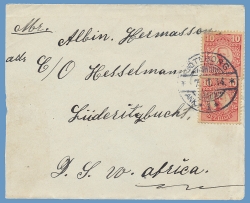 Mr. Albin. Hermasson
adr C/O Hesselmann
Lüderitzbucht.
D. S. W. Africa.
10
GÖTEBORG